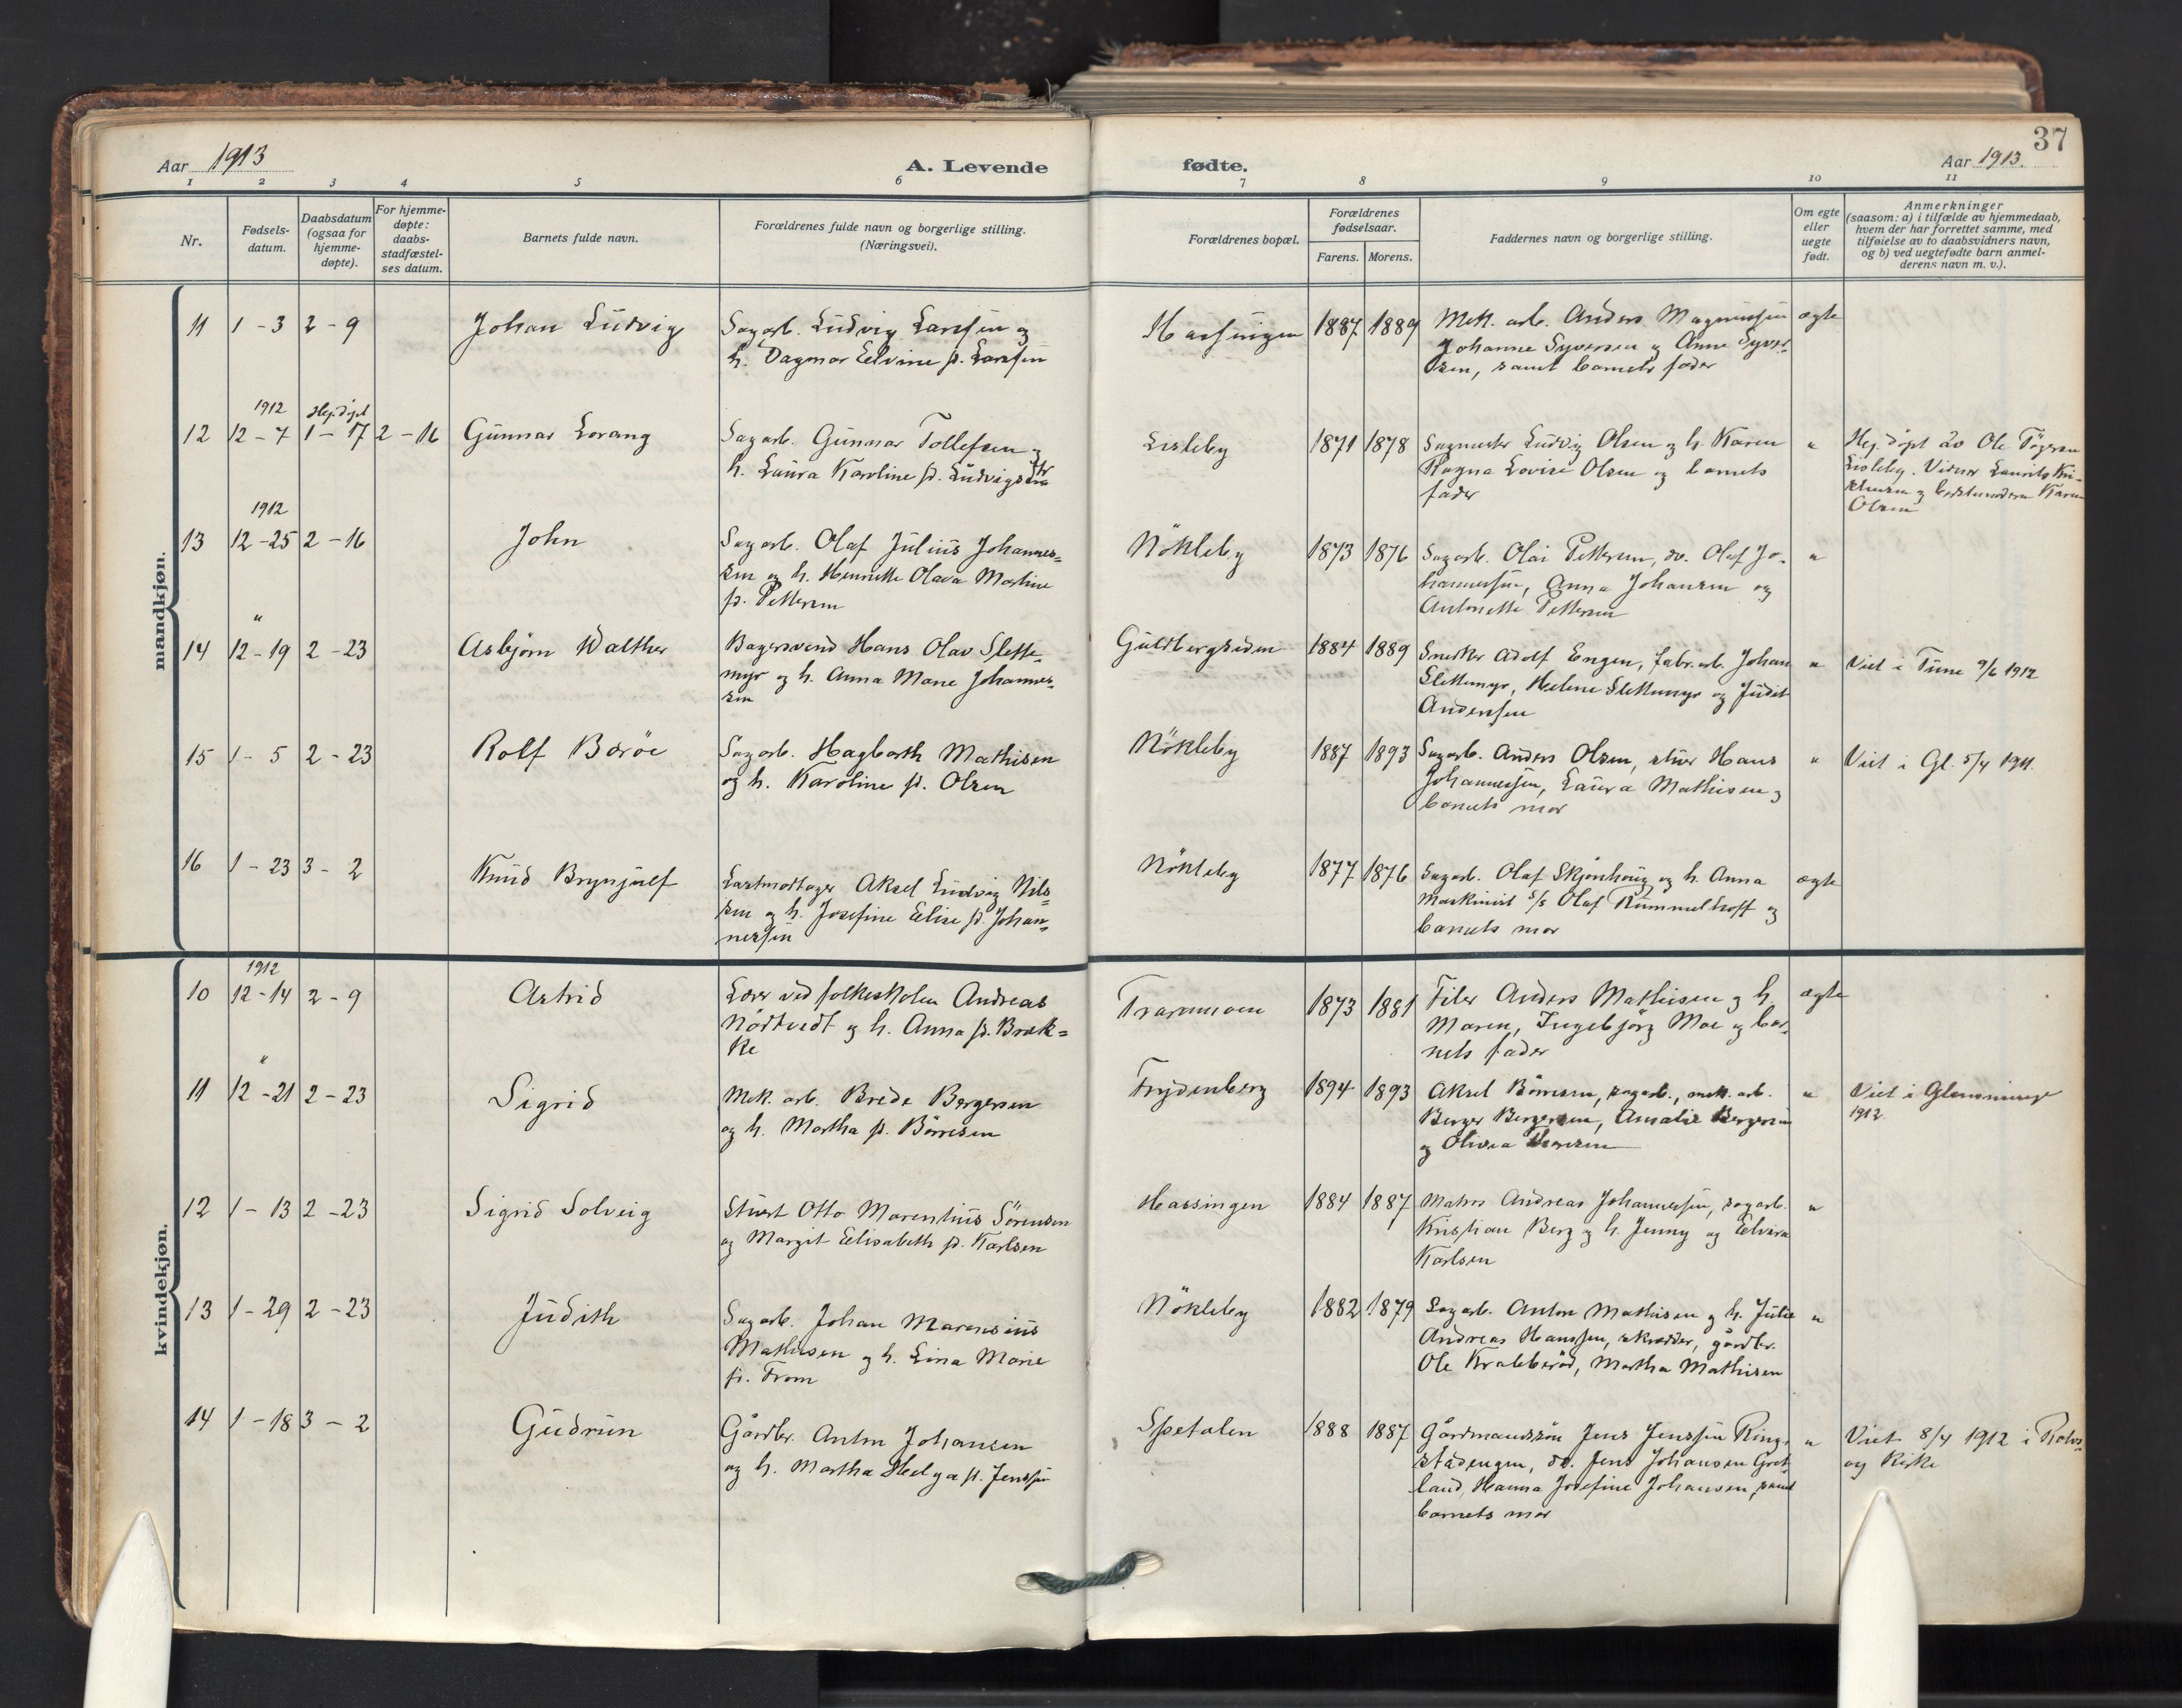 37
Aar 1913
A. Levende
fødte.
Aar 1913.
1 2 3 4 5 6 7 8 9 10 11
Nr.
Fødsels-
datum.
Daabsdatum
(ogsaa for
hjemme-
døpte).
For hjemme-
døpte:
daabs-
stadfæstel-
ses datum.
Barnets fulde navn.
Forældrenes fulde navn og borgerlige stilling.
(Næringsvei).
Forældrenes bopæl.
Forældrenes
fødselsaar.
Farens. Morens.
Faddernes navn og borgerlige stilling.
Om egte
eller
uegte
født.
Anmerkninger
(saasom: a) i tilfælde av hjemmedaab,
hvem der har forrettet samme, med
tilføielse av to daabsvidners navn,
og b) ved uegtefødte barn anmel-
derens navn m. v.).
mandkjøn.
11 1-3 2-9 Johan Ludvig
Sagarb. Ludvig Larssen og
h. Dagmar Elvine f. Larssen
Hassingen 1887 1889
Mek. arb. Anders Magnussen
Johanne Syversen og Anne Syver-
sen, samt barnets fader
ægte
12 1912 12-7 Hej. døpt 1-17 2-16 Gunnar Lorang
Sagarb. Gunnar Tollefsen og
h. Laura Karoline f. Ludvigsdtr
Lisleby 1871 1878
Sagmester Ludvig Olsen og h. Karen
Ragna Lovise Olsen og barnets
fader
"
Hej. døpt av Ole
Lisleby. Vidner Laurits Kri-
Karen
Olsen
13 1912 12-25 2-16 John
Sagarb. Olaf Julius Johannes-
sen og h. Henriette Olava Martine
f. Pettersen
Nökleby 1873 1876
Sagarb. Olai Pettersen, do. Olaf Jo-
hannessen, Anna Johansen og
Antonette Pettersen
"
14 " 12-19 2-23 Asbjørn Walther
Bagersvend Hans Olav Slette-
myr og h. Anna Marie Johannes-
sen
Guldbergsiden 1884 1889
Snekker Adolf Engen, fabr.arb. Johan
Slettemyr, Helene Slettemyr og Judit
Andersen
"
Viet i Tune 9/6 1912
15 1-5 2-23 Rolf Bærøe
Sagarb. Hagbarth Mathisen
og h. Karoline f. Olsen
Nökleby 1887 1893
Sagarb. Anders Olsen, stuer Hans
Johannessen, Laura Mathisen og
barnets mor
"
Viet i Gl. 5/4 1911.
16 1-23 3-2 Knud Brynjulf
Lastmottager Aksel Ludvig Nils-
sen og h. Josefine Elise f. Johan-
nessen
Nökleby 1877 1876
Sagarb. Olaf Skjønhaug og h. Anna
Maskinist s/s Olaf Rummelhoff og
barnets mor
ægte
kvindekjøn.
10 1912 12-14 2-9 Astrid
Lærer ved folkeskolen Andreas
Nödtvedt og h. Anna f. Bræk=
ke
1873 1881
Filer Anders Mathisen og h.
Maren, Ingebjörg Moe og bar-
nets fader
ægte
11 " 12-21 2-23 Sigrid
Mek. arb. Brede Bergersen
og h. Martha f. Börresen
Frydenberg 1894 1893
Aksel Börresen, sagarb., mek. arb.
Berger Bergersen, Amalie Bergersen
og Olivia
"
Viet i Glemminge
1912.
12 1-13 2-23 Sigrid Solveig
Stuert Otto Marentius Sörensen
og Margit Elisabeth f. Karlsen
Hassingen 1884 1887
Matros Andreas Johannessen, sagarb.
Kristian Berg og h. Jenny og Elvira
Karlsen
"
13 1-29 2-23 Judith
Sagarb. Johan Marensius
Mathisen og h. Lina Marie
f. From
Nökleby 1882 1879
Sagarb. Anton Mathisen og h. Julie
Andreas Hanssen, skrædder, gårdbr.
Ole Krabberöd, Martha Mathisen
"
14 1-18 3-2 Gudrun
Gårdbr. Anton Johansen
og h. Martha Helga f. Jenssen
Spetalen 1888 1887
Gårdmandssön Jens Jenssen Ring-
stadengen, do. Jens Johansen Gret-
land, Hanna Josefine Johansen, samt
barnets mor
"
Viet 8/4 1912 i Rolvs-
øy Kirke